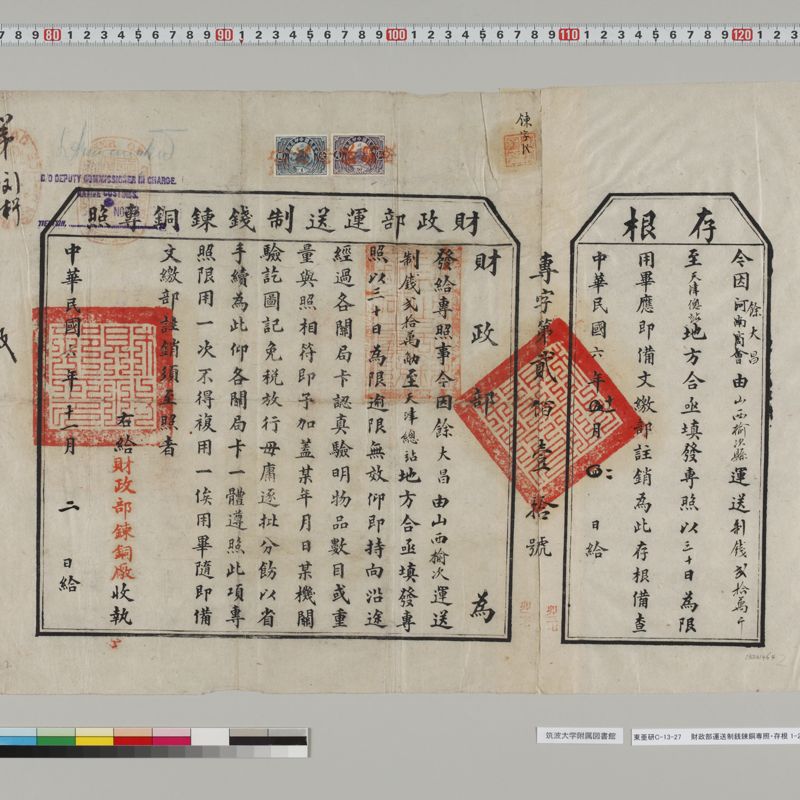 存根
令因餘大昌河南商會由山西榆次縣運送制錢弍拾萬斤
至天津總站地方合亟填發專照以三十日為限
用畢應即備文繳部註銷為此存根備查
中華民國六年十一月二日給
專字第貳佰壹拾號
財政部運送制錢鍊銅專照
財政部為
發給專照事今因餘大昌由山西榆次運送
制錢弍拾萬觔至天津總站地方合亟填發專
照以三十日為限逾限無效仰即持向沿途
經過各關局卡認真驗明物品數目或重
量與照相符即予加蓋某年月日某機關
驗訖圖記免稅放行毋庸逐批分飭以省
手續為此仰各關局卡一體遵照此項專
照限用一次不得複用一俟用畢隨即備
文繳部註銷須至照者
右給財政部鍊銅廠收執
中華民國六年十一月二日給
C/O DEPUTY COMMISSIONER IN CHARGE.
NATIVE CUSTOMS.
NO
TIENTSIN
筑波大学附属図書館
東亜研C-13-27 財政部運送制銭錬銅専照・存根 1-2